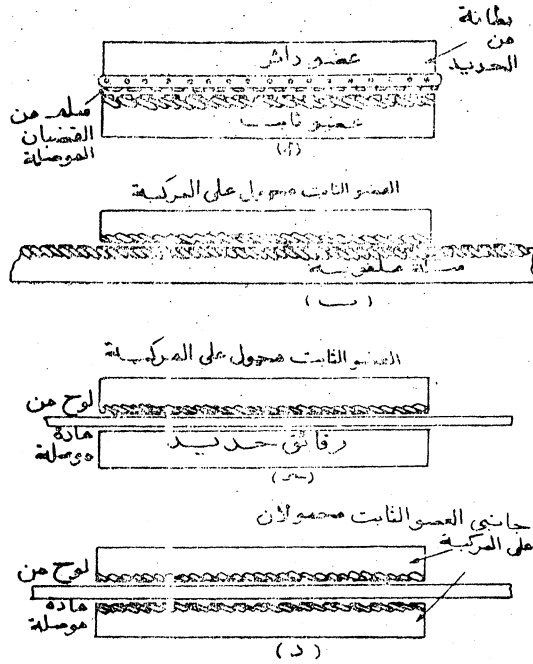 بطانة
من
الحديد
عضو دائر
فيلم من
القضبان
الموصلة
عضو ثابت
(أ)
العضو الثابت محمول على المركبة
(ب)
العضو الثابت محمول على المركبة
لوح من
مادة
موصلة
رقائق حديد
(جـ)
جانبي العضو الثابت محمولان
على المركبة
لوح من
مادة
موصلة
(د)